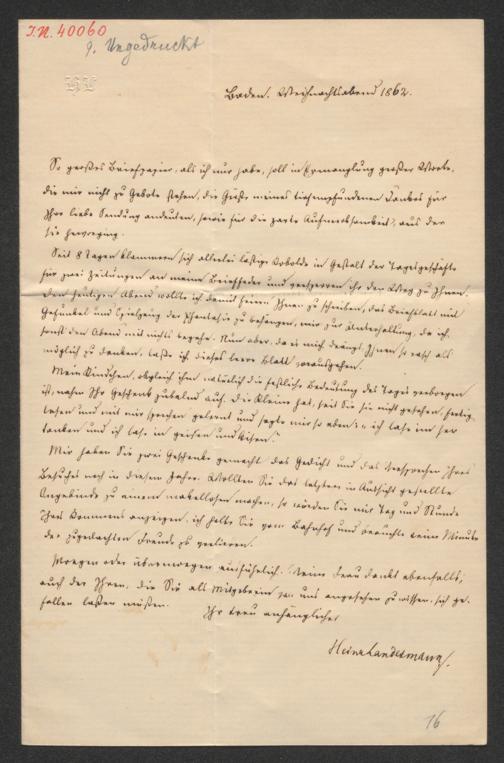 I.N. 40060
9. Ungedruckt
Baden. Weihnachtsabend 1862.
So großes Briefpapier, als ich nur habe, soll in Ermanglung großer Worte,
die mir nicht zu Gebote stehen, die Größe meines tiefempfundenen Dankes für
Ihre liebe Sendung andeuten, sowie für die zarte Aufmerksamkeit, aus der
sie hervorging.
Seit 8 Tagen klammern sich allerlei lästige Kobolde in Gestalt der Tagesgeschäfte
für zwei Zeitungen an meine Brieffeder und versperren ihr den Weg zu Ihnen.
Den heutigen Abend wollte ich damit feiern Ihnen zu schreiben, das Briefblatt mit
Gefunkel und Spielzeug der Phantasie zu behängen, mir zur Unterhaltung, da ich
sonst den Abend mit nichts begehe. Nun aber, da es mich drängt Ihnen so rasch als
möglich zu danken, lasse ich dieses leere Blatt vorausgehen.
Mein Kindchen, obgleich ihm natürlich die festliche Bedeutung des Tages verborgen
ist, nahm Ihr Geschenk jubelnd auf. Die Kleine hat, seit Sie sie nicht gesehen, fertig
lesen und mit mir sprechen gelernt und sagte mir so eben: "ich lasse im ser
danken und ich lasse in grüßen und küssen."
Mir haben Sie zwei Geschenke gemacht das Gedicht und das Versprechen Ihres
Besuches noch in diesem Jahre. Wollten Sie das letztere in Aussicht gestellte
Angebinde zu einem makellosen machen, so würden Sie mir Tag und Stunde
Ihres Kommens anzeigen, ich holte Sie vom Bahnhof und brauchte keine Minute
der zugedachten Freude zu verlieren.
Morgen oder übermorgen ausführlich. Meine Frau dankt ebenfalls,
auch der Ihren, die Sie als Mitgeberin von uns angesehen zu wissen, sich ge-
fallen lassen müssen.
Ihr treu anhänglicher
Heinr Landesmann.
16